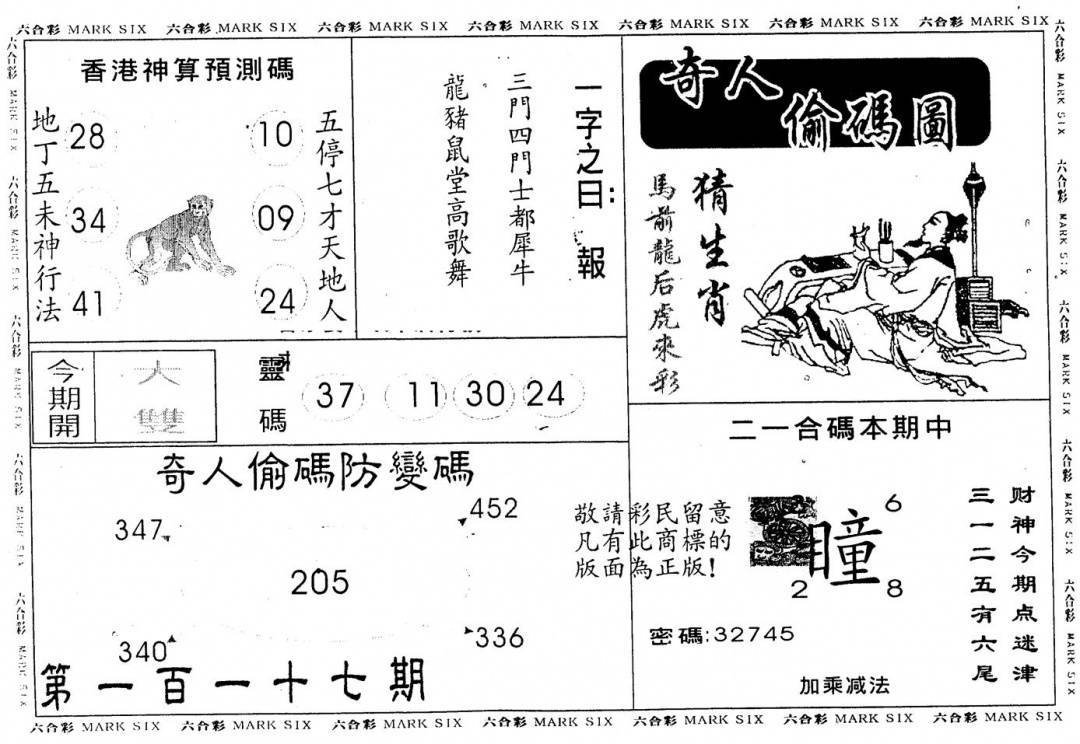 六合彩 MARK SIX 六合彩 MARK SIX 六合彩 MARK SIX 六合彩 MARK SIX 六合彩 MARK SIX 六合彩 MARK SIX 六合彩 MARK SIX
六合彩 MARK SIX 六合彩 MARK SIX 六合彩 MARK SIX 六合彩 MARK SIX 六合彩 MARK SIX
香港神算預測碼
地丁五未神行法
28
34
41
10
09
24
五停七才天地人
一字之曰:報
三門四門士都犀牛
龍豬鼠堂高歌舞
奇人
偷碼圖
猜生肖
馬前龍后虎來彩
今期開
大雙
靈碼
37 11 30 24
奇人偷碼防變碼
347
452
205
340
336
第一百一十七期
敬請彩民留意
凡有此商標的
版面為正版!
二一合碼本期中
6
瞳
2
8
密碼:32745
加乘减法
财神今期点迷津
三一二五有六尾
六合彩 MARK SIX 六合彩 MARK SIX 六合彩 MARK SIX 六合彩 MARK SIX 六合彩 MARK SIX
六合彩 MARK SIX 六合彩 MARK SIX 六合彩 MARK SIX 六合彩 MARK SIX 六合彩 MARK SIX 六合彩 MARK SIX 六合彩 MARK SIX